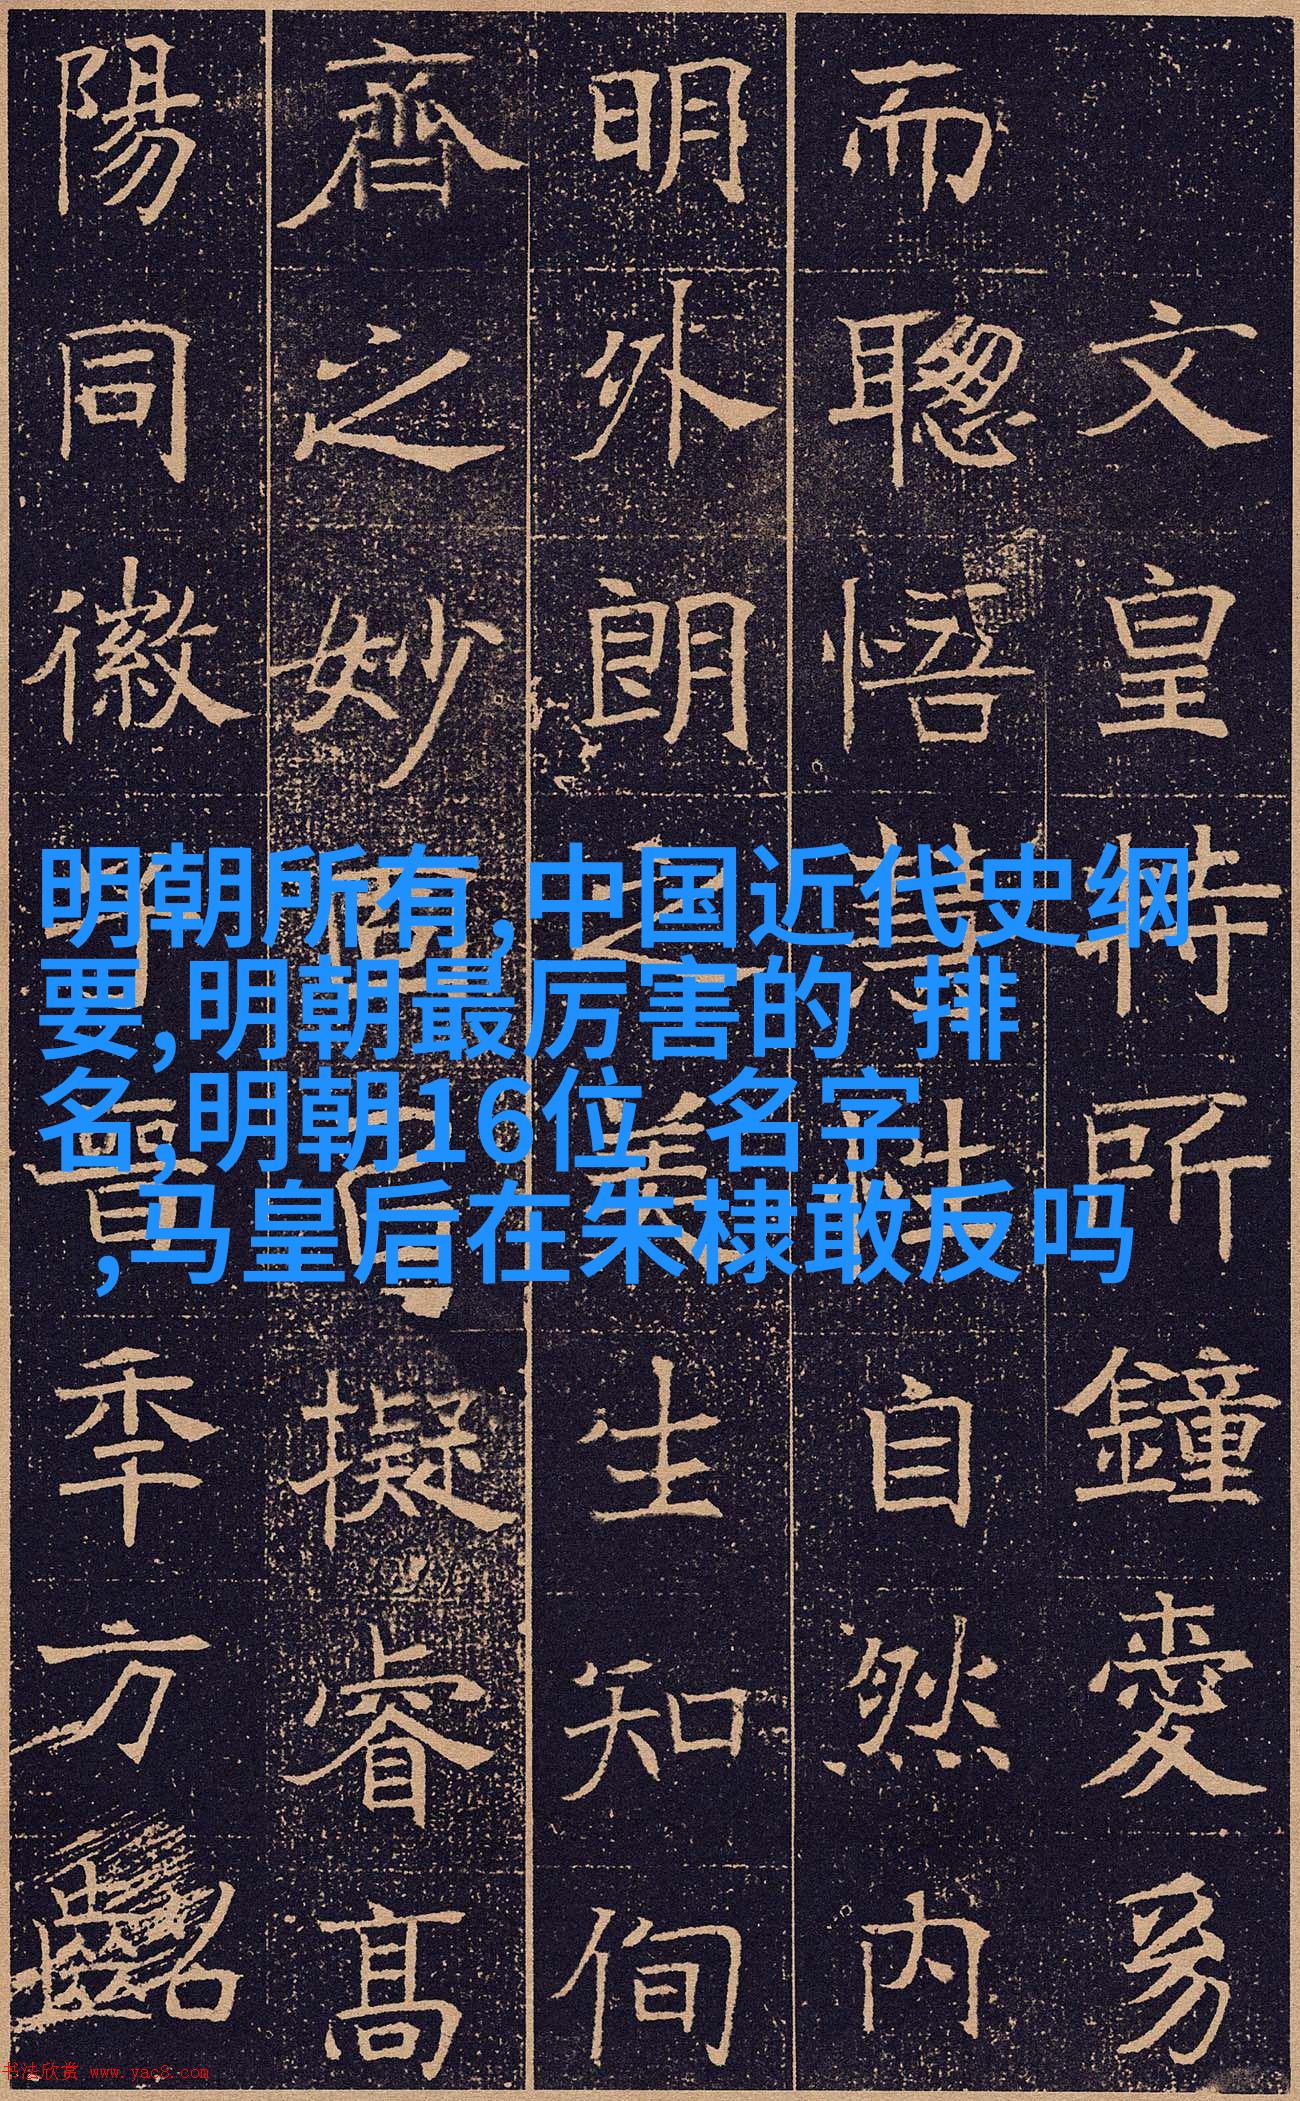 文皇特所鐘愛
而聰悟慧性自然內
明外朗之美生知徇
齊之妙擬睿高
陽同徽晉季方齠
明朝所有,中国近代史纲
要,明朝最厉害的 排
名,明朝16位 名字
,马皇后在朱棣敢反吗
书法欣赏 www.yac8.com